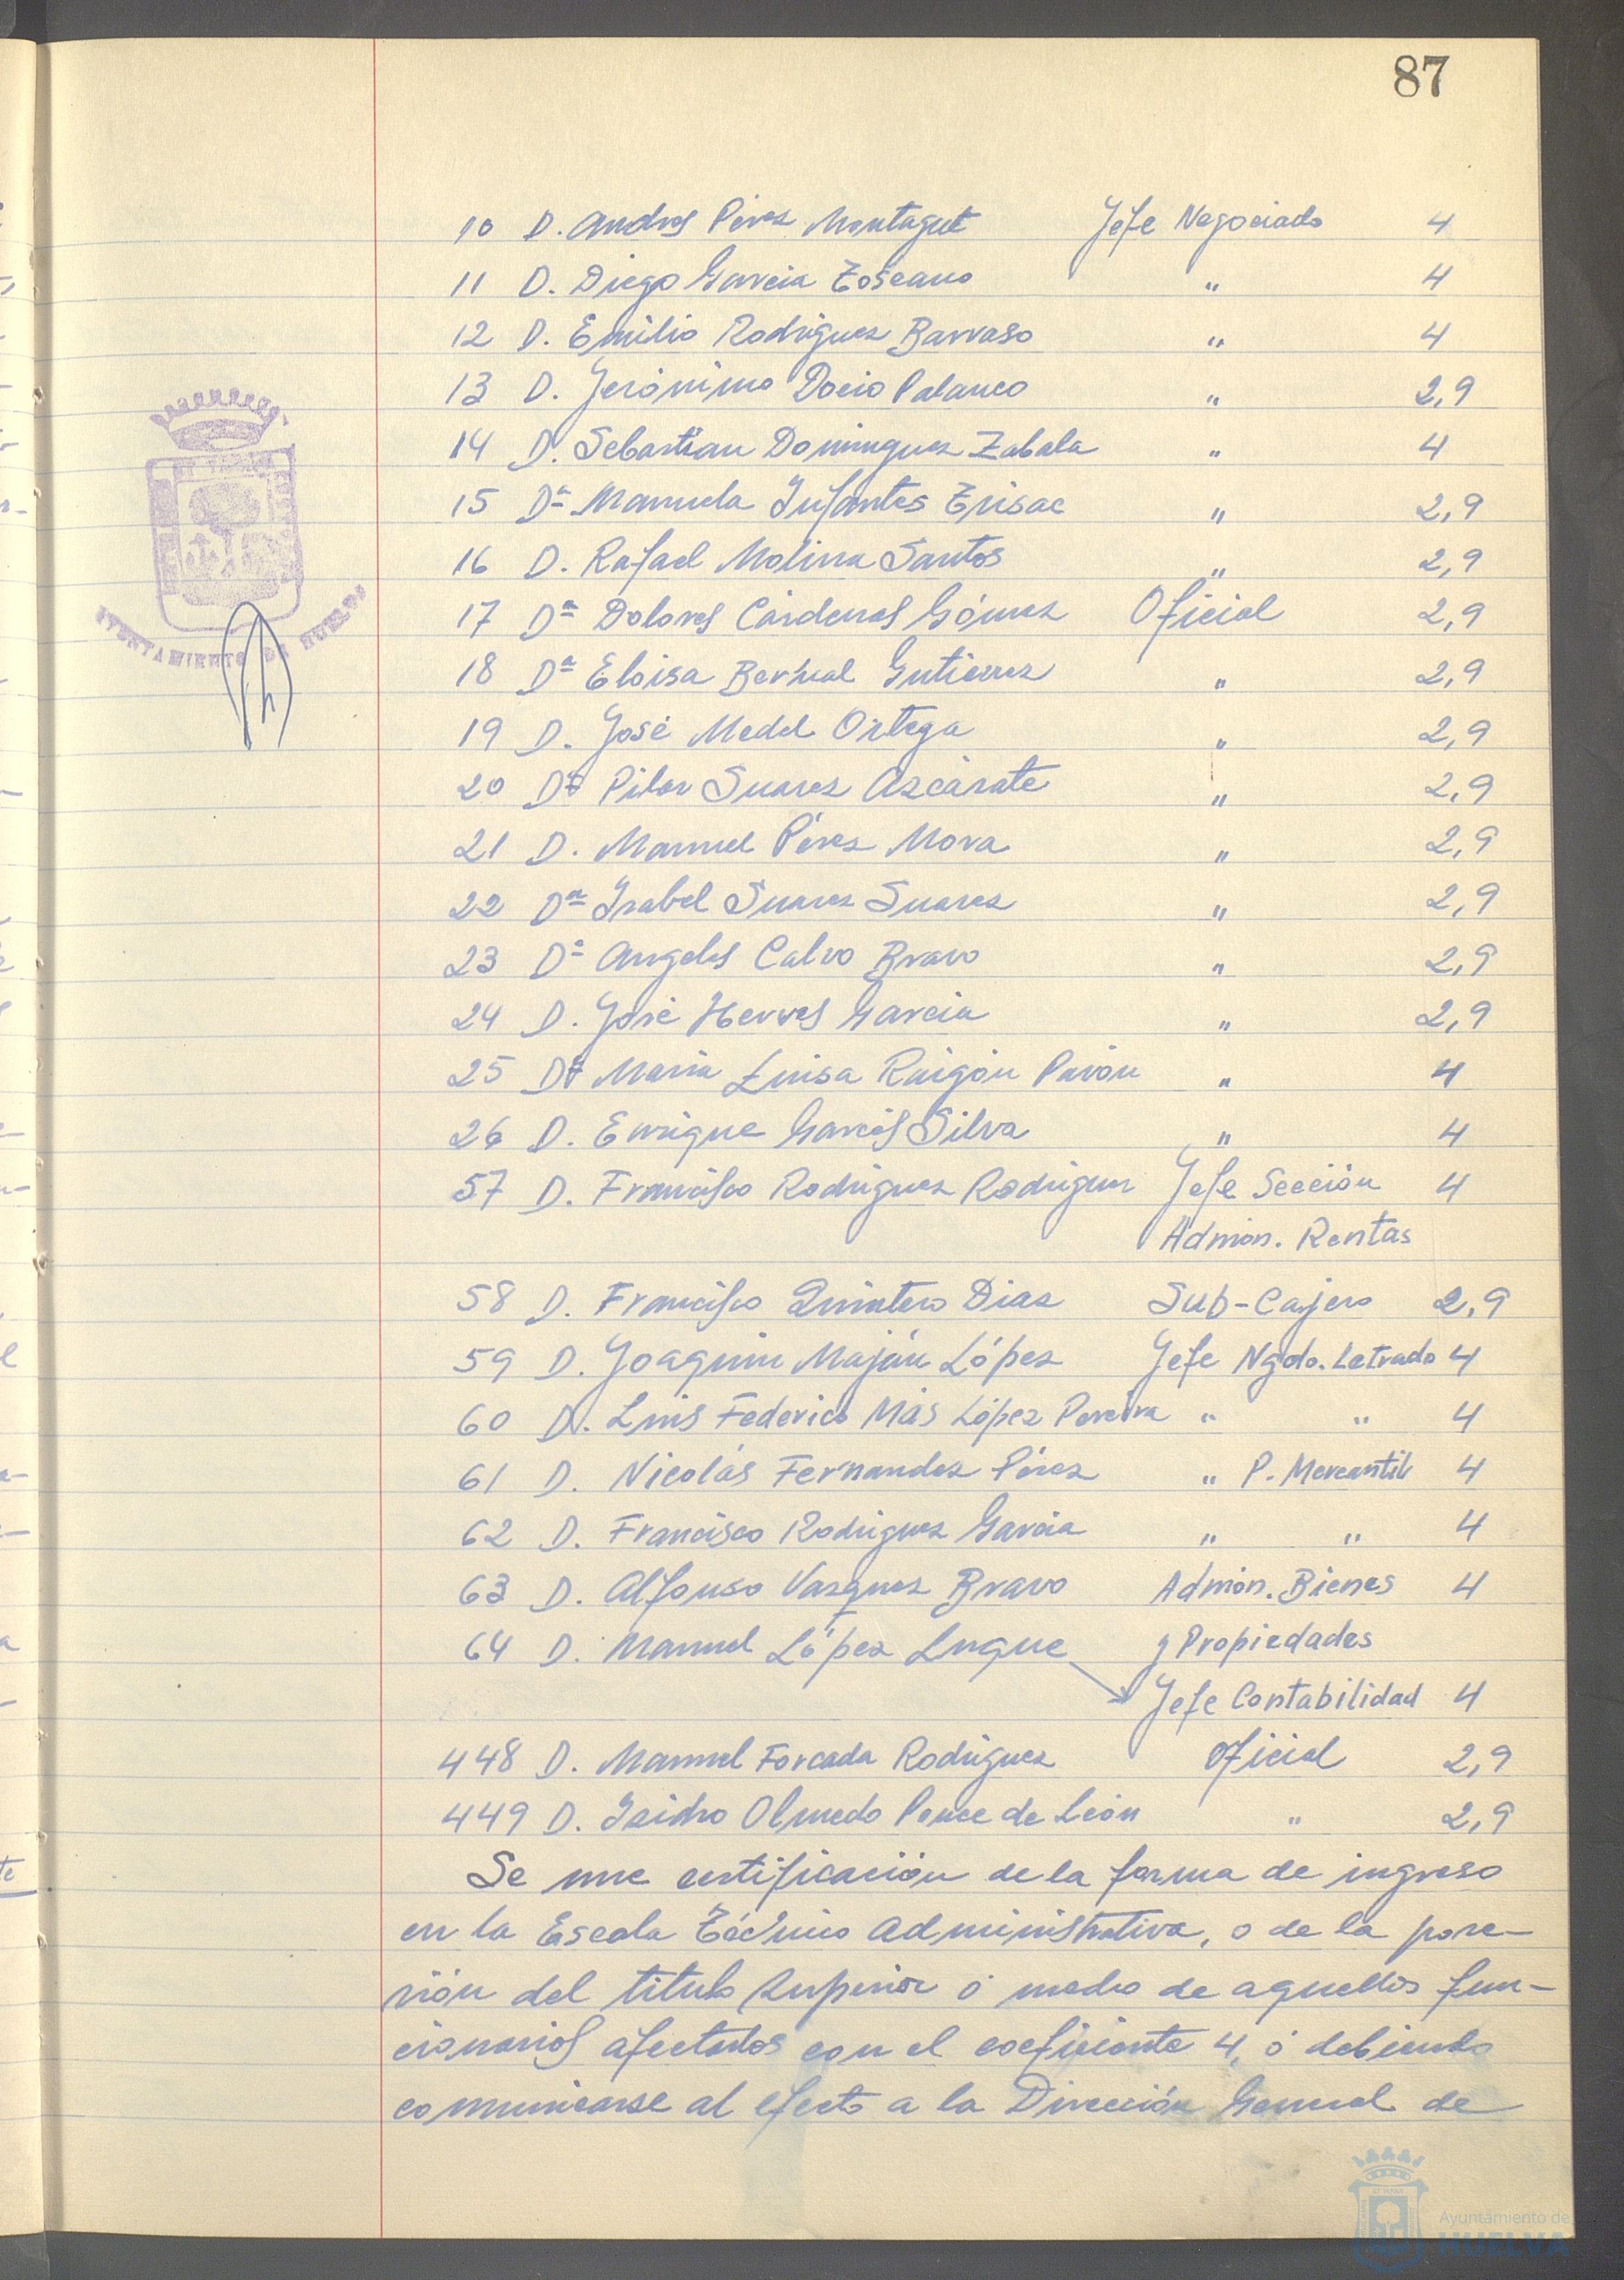 87
10 D. Andres Pérez Montagut Jefe Negociado 4
11 D. Diego Garcia Toscano " 4
12 D. Emilio Rodriguez Barraso " 4
13 D. Jerónimo Docio Palanco " 2,9
14 D. Sebastian Dominguez Zabala " 4
15 Dª Manuela Infantes " 2,9
16 D. Rafael Molina Santos " 2,9
17 Dª Dolores Cárdenas Gómez Oficial 2,9
18 Dª Eloisa Bernal Gutierrez " 2,9
19 D. José Medel Ortega " 2,9
20 Dª Pilar Suarez Azcárate " 2,9
21 D. Manuel Pérez Mora " 2,9
22 Dª Isabel Suarez Suarez " 2,9
23 Dª Angeles Calvo Bravo " 2,9
24 D. José Herves Garcia " 2,9
25 Dª Maria Luisa Raigón Pavón " 4
26 D. Enrique Garcés Silva " 4
57 D. Francisco Rodriguez Rodriguez Jefe Sección 4
Admón. Rentas
58 D. Francisco Quintero Diaz Sub-Cajero 2,9
59 D. Joaquin Maján López Jefe Ngdo. Letrado 4
60 D. Luis Federico Más López Pereira " " 4
61 D. Nicolás Fernandez Pérez " P. Mercantil 4
62 D. Francisco Rodriguez Garcia " " 4
63 D. Alfonso Vazquez Bravo Admón. Bienes 4
64 D. Manuel López Luque y Propiedades
Jefe Contabilidad 4
448 D. Manuel Forcada Rodriguez Oficial 2,9
449 D. Isidro Olmedo Ponce de León " 2,9
Se une certificación de la forma de ingreso
en la Escala Técnico Administrativa, o de la pose-
sión del titulo Superior ó medio de aquellos fun-
cionarios afectados con el coeficiente 4, ó debiendo
comunicarse al efecto a la Dirección General de
AYUNTAMIENTO DE HUELVA
Ayuntamiento de
HUELVA